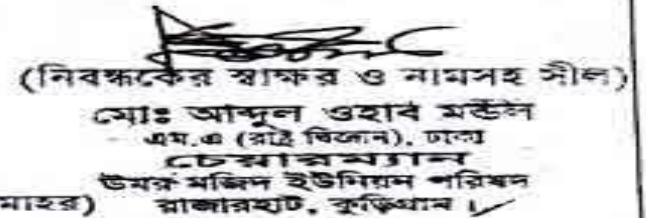 (নিবন্ধকের স্বাক্ষর ও নামসহ সীল)
মোঃ আব্দুল ওহাব মন্ডল
এম.এ (রাষ্ট্র বিজ্ঞান), ঢাকা
চেয়ারম্যান
উমর মজিদ ইউনিয়ন পরিষদ
মোহর) রাজারহাট, কুড়িগ্রাম।